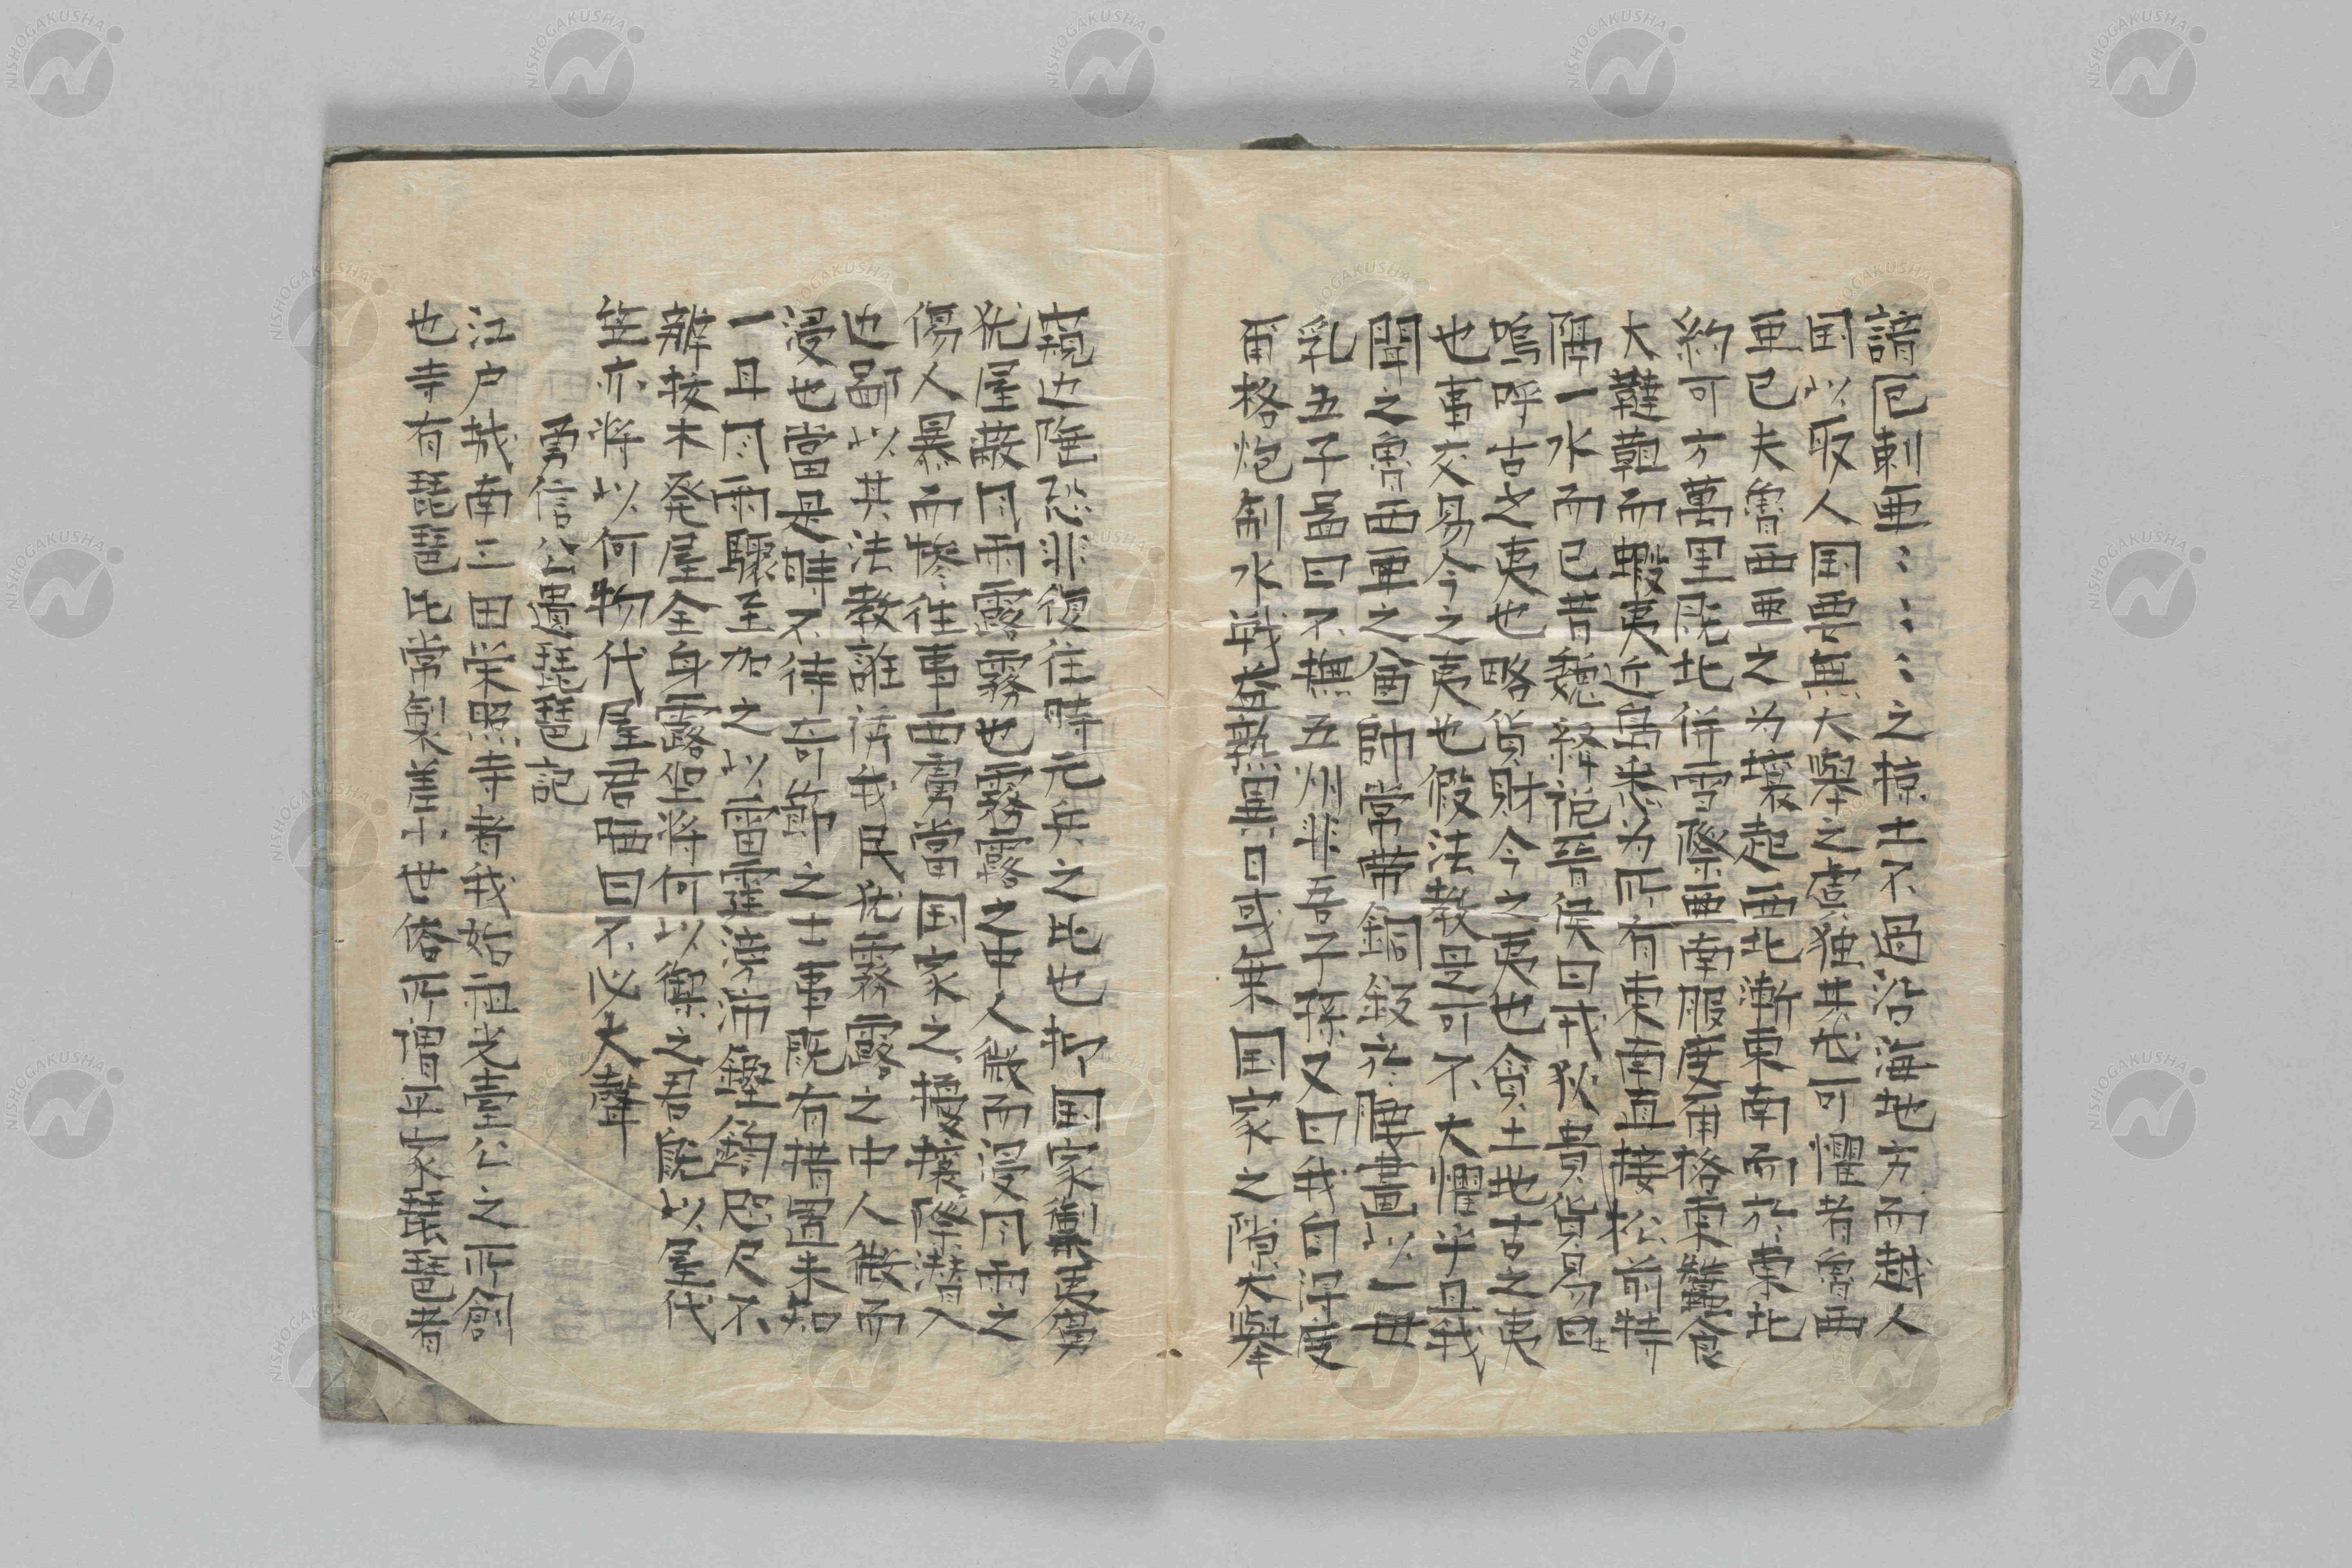 諳厄剌亜〻〻〻之掠土不過沿海地方而越人
国以取人国要無大擧之虞独其尤可懼者魯西
亜已夫魯西亜之为壤起西北漸東南而於東北
約可方萬里既北併雪際亜南服度甬格東蠶食
大韃靼而蝦夷近島悉为所有東南直接松前特
隔一水而已昔魏絳説晋侯曰戎狄貴貨易土
嗚呼古之夷也略貨財今之夷也貪土地古之夷
也事交易今之夷也假法教是可不大懼乎且我
聞之魯西亜之酋帥常帶銅釵於腰畫以一母
乳五子嵓曰不撫五州非吾子孫又曰我自得度
甬格炮制水戦益熟星日或乗国家之隙大擧
窺辺陲恐非復往時元兵之比也抑国家衝患寞
猶屋蔽风雨露霧也霧露之中人微而浸风雨之
傷人暴而惨往事西虜當国家之擾攘際潜入
辺鄙以其法教誑誘我民猶霧露之中人微而
浸也當是時不待奇節之士事既有措置未知
一旦风雨驟至加之以雷霆滂沛鏗鍧咫尺不
辨抜木発屋全身露坐将何以禦之吾既以屋代
笠亦将以何物代屋君西曰不必大聲
勇信公遺琵琶記
江戸城南三田栄照寺者我始祖戈臺公之所創
也寺有琵琶氏常製差小世俗所謂平家琵琶者